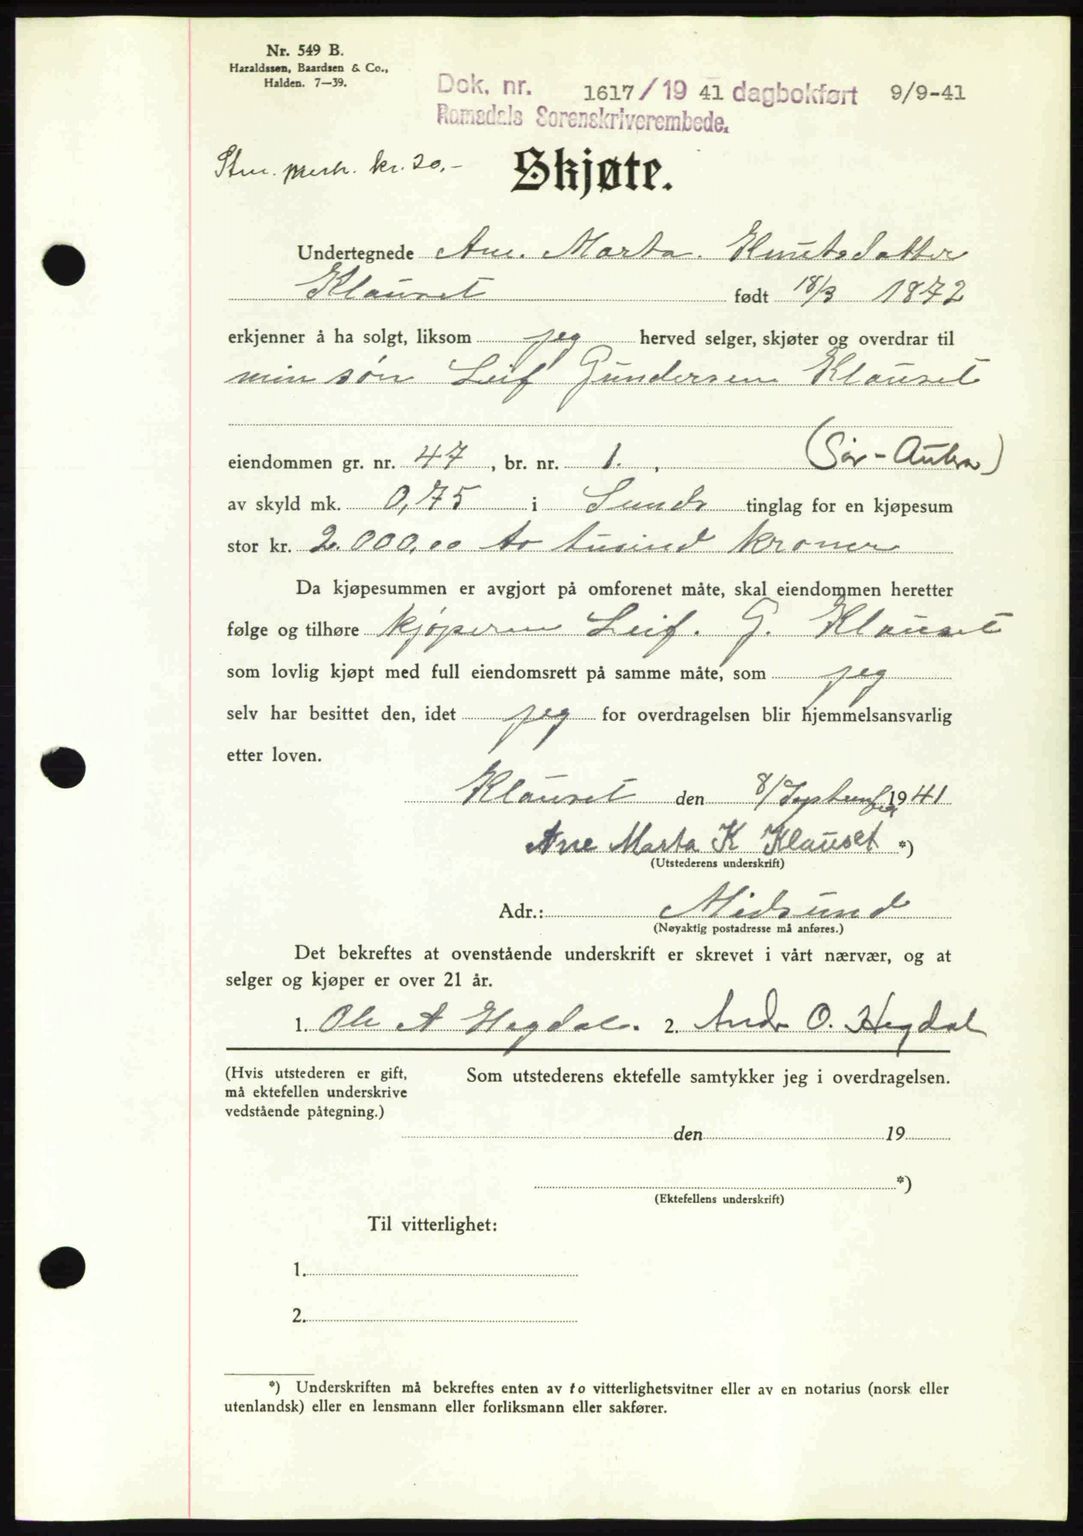 Nr. 549 B.
Haraldssen, Baardsen & Co.,
Halden. 7—39.
Dok. nr. 1617 / 19 41 dagbokført 9/9-41
Romsdals Sorenskriverembede.
Stm. merk. kr. 20.-
Skjøte.
Undertegnede Ane. Marta. Knutsdatter
Klauset født 18/3 1872
erkjenner å ha solgt, liksom jeg herved selger, skjøter og overdrar til
min søn Leif Gundersen Klauset
eiendommen gr. nr. 47, br. nr. 1. , (Sør-
av skyld mk. 0,75 i Sunds tinglag for en kjøpesum
stor kr. 2.000,00 to tusind kroner
Da kjøpesummen er avgjort på omforenet måte, skal eiendommen heretter
følge og tilhøre kjøperen Leif. G. Klauset
som lovlig kjøpt med full eiendomsrett på samme måte, som jeg
selv har besittet den, idet jeg for overdragelsen blir hjemmelsansvarlig
etter loven.
Klauset den 8/September 1941
Ane Marta K Klauset *)
(Utstederens underskrift)
Adr.: Midsund
(Nøyaktig postadresse må anføres.)
Det bekreftes at ovenstående underskrift er skrevet i vårt nærvær, og at
selger og kjøper er over 21 år.
1. Ole A Hegdal. 2. Andr O. Hegdal
(Hvis utstederen er gift, Som utstederens ektefelle samtykker jeg i overdragelsen.
må ektefellen underskrive
vedstående påtegning.)
den 19
*)
(Ektefellens underskrift)
Til vitterlighet:
1.
2.
*) Underskriften må bekreftes enten av to vitterlighetsvitner eller av en notarius (norsk eller
utenlandsk) eller en lensmann eller forliksmann eller sakfører.